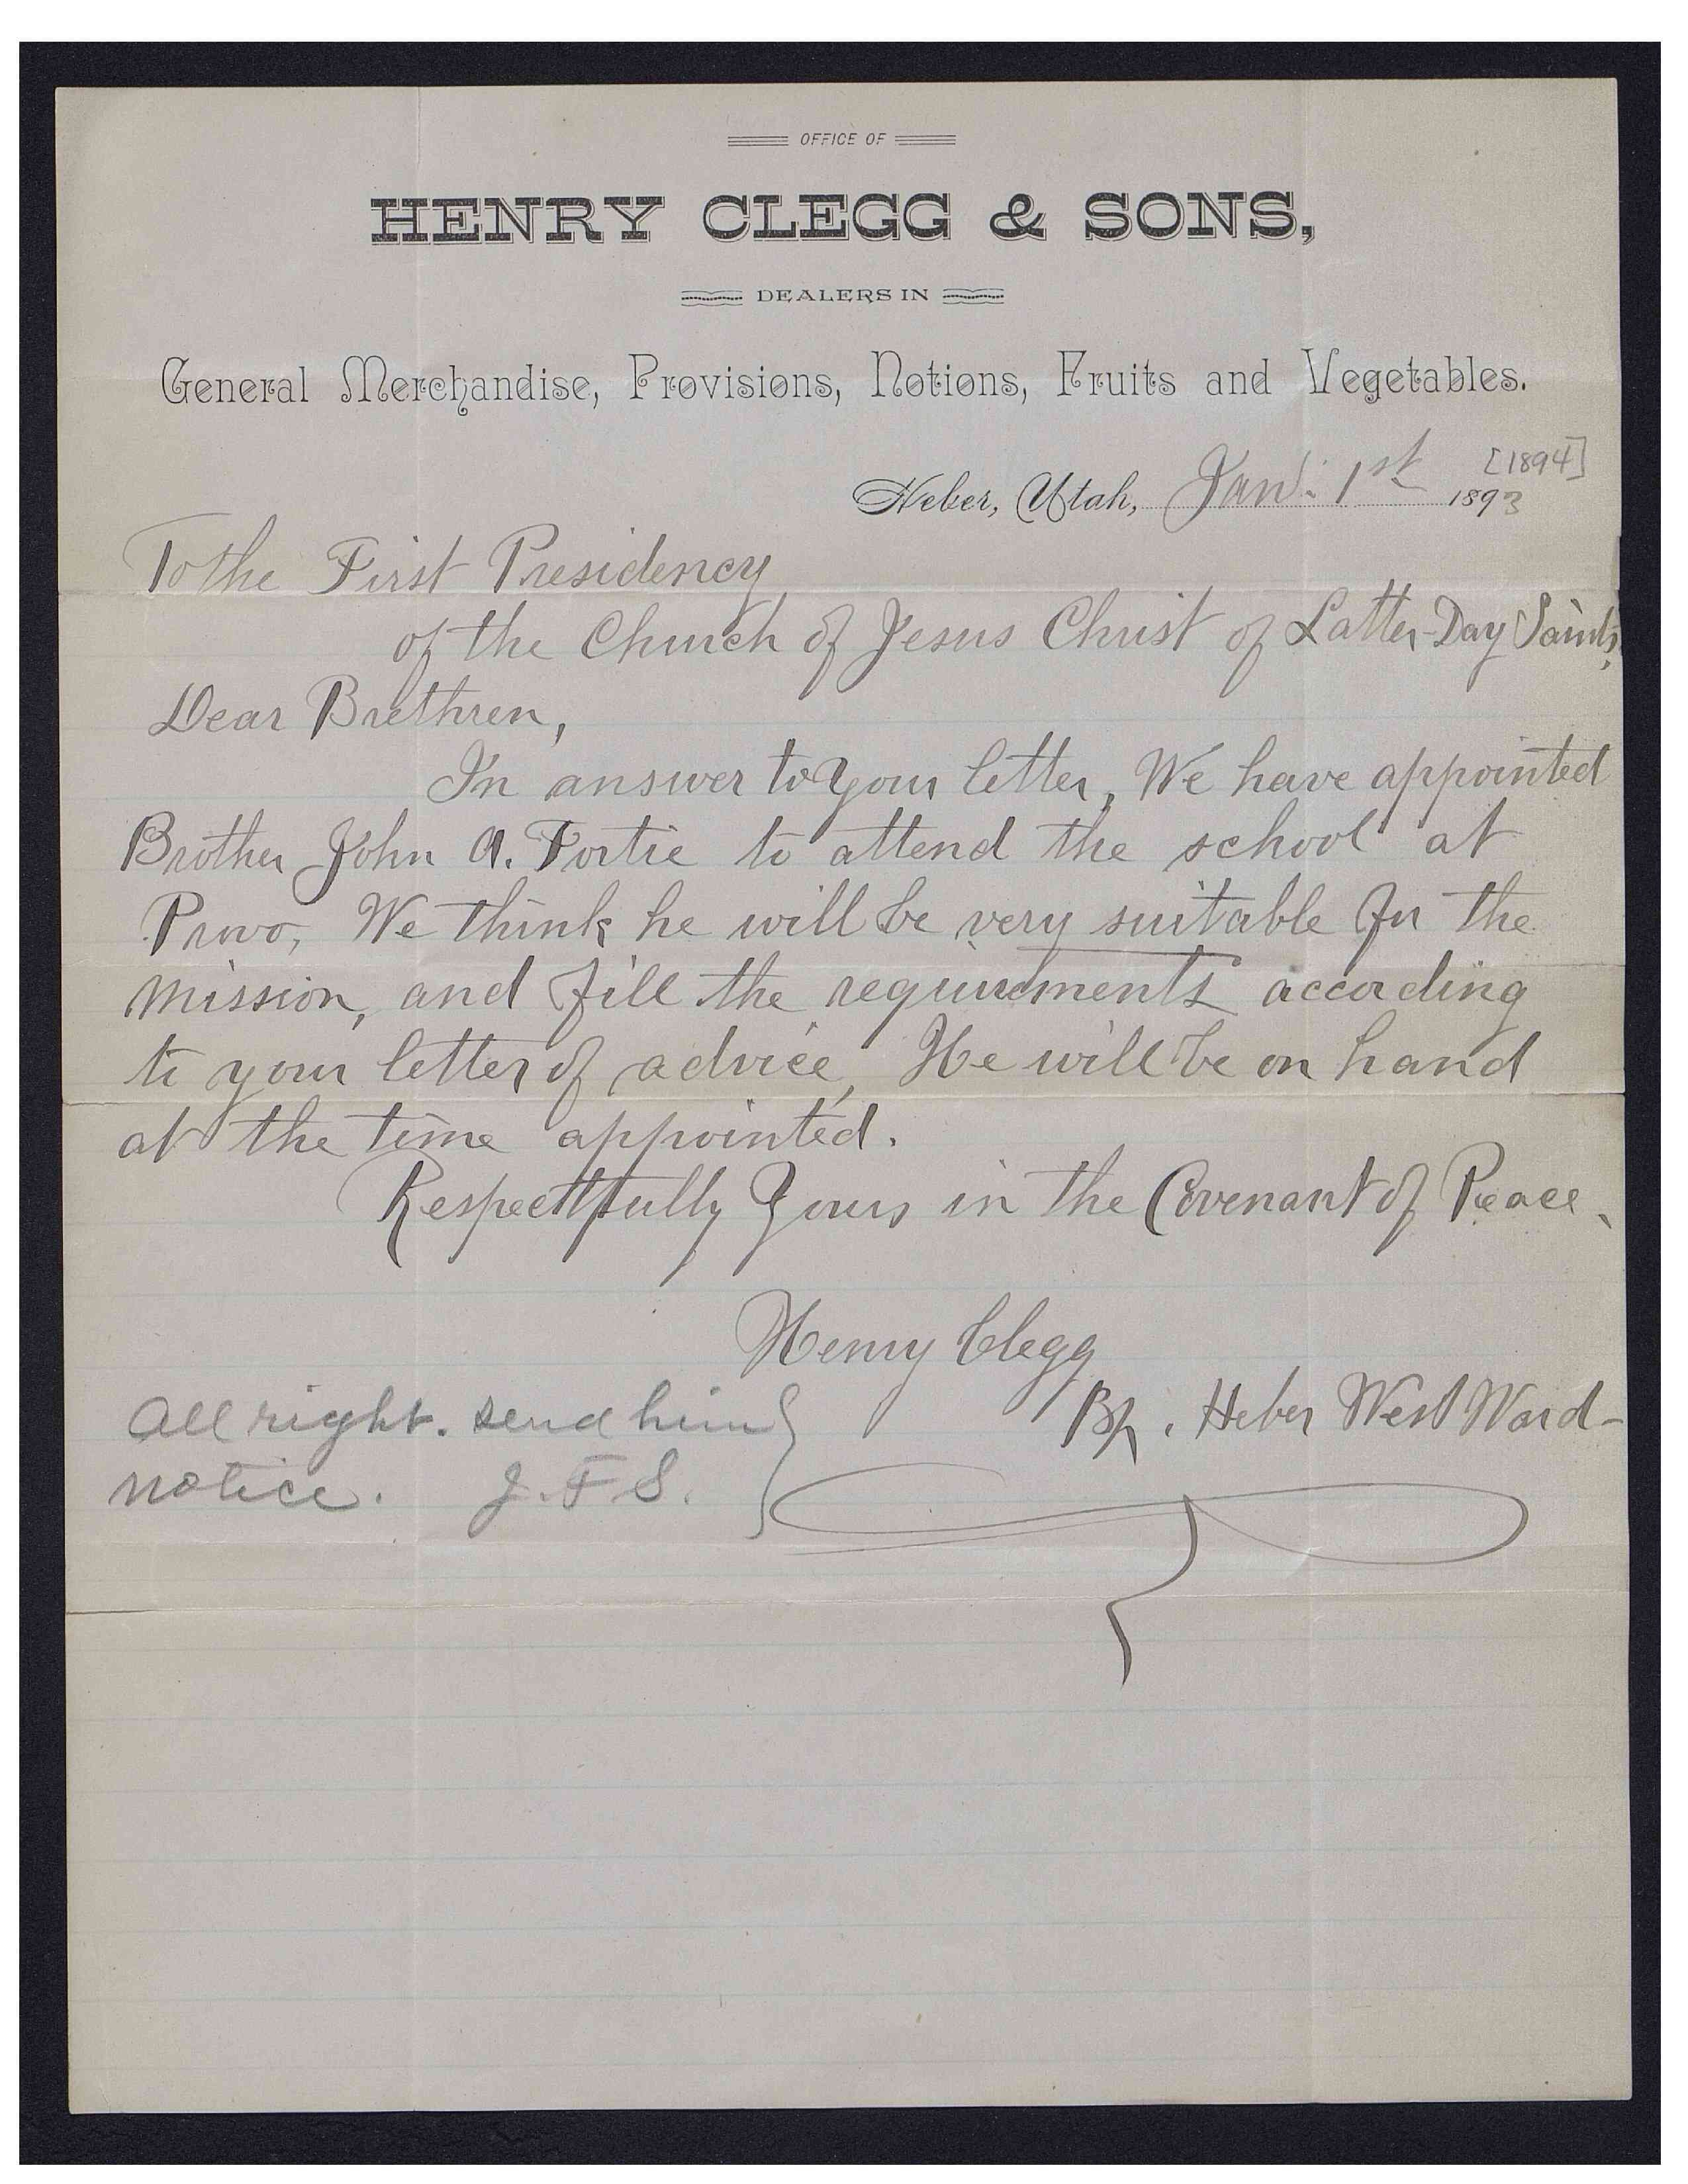 OFFICE OF
HENRY CLEGG & SONS,
DEALERS IN
General Merchandise, Provisions, Notions, Fruits and Vegetables.
Heber, Utah, Jan. 1st 1893 [1894]
To the First Presidency
of the Church of Jesus Christ of Latter-Day Saints,
Dear Brethren,
In answer to your letter, We have appointed
Brother John A. Fortie to attend the school at
Provo, We think he will be very suitable for the
mission, and fill the requirements according
to your letter of advice, He will be on hand
at the time appointed.
Respectfully Yours in the Covenant of Peace,
Henry Clegg
Bp. Heber West Ward-
All right. send him
notice. J. F S.